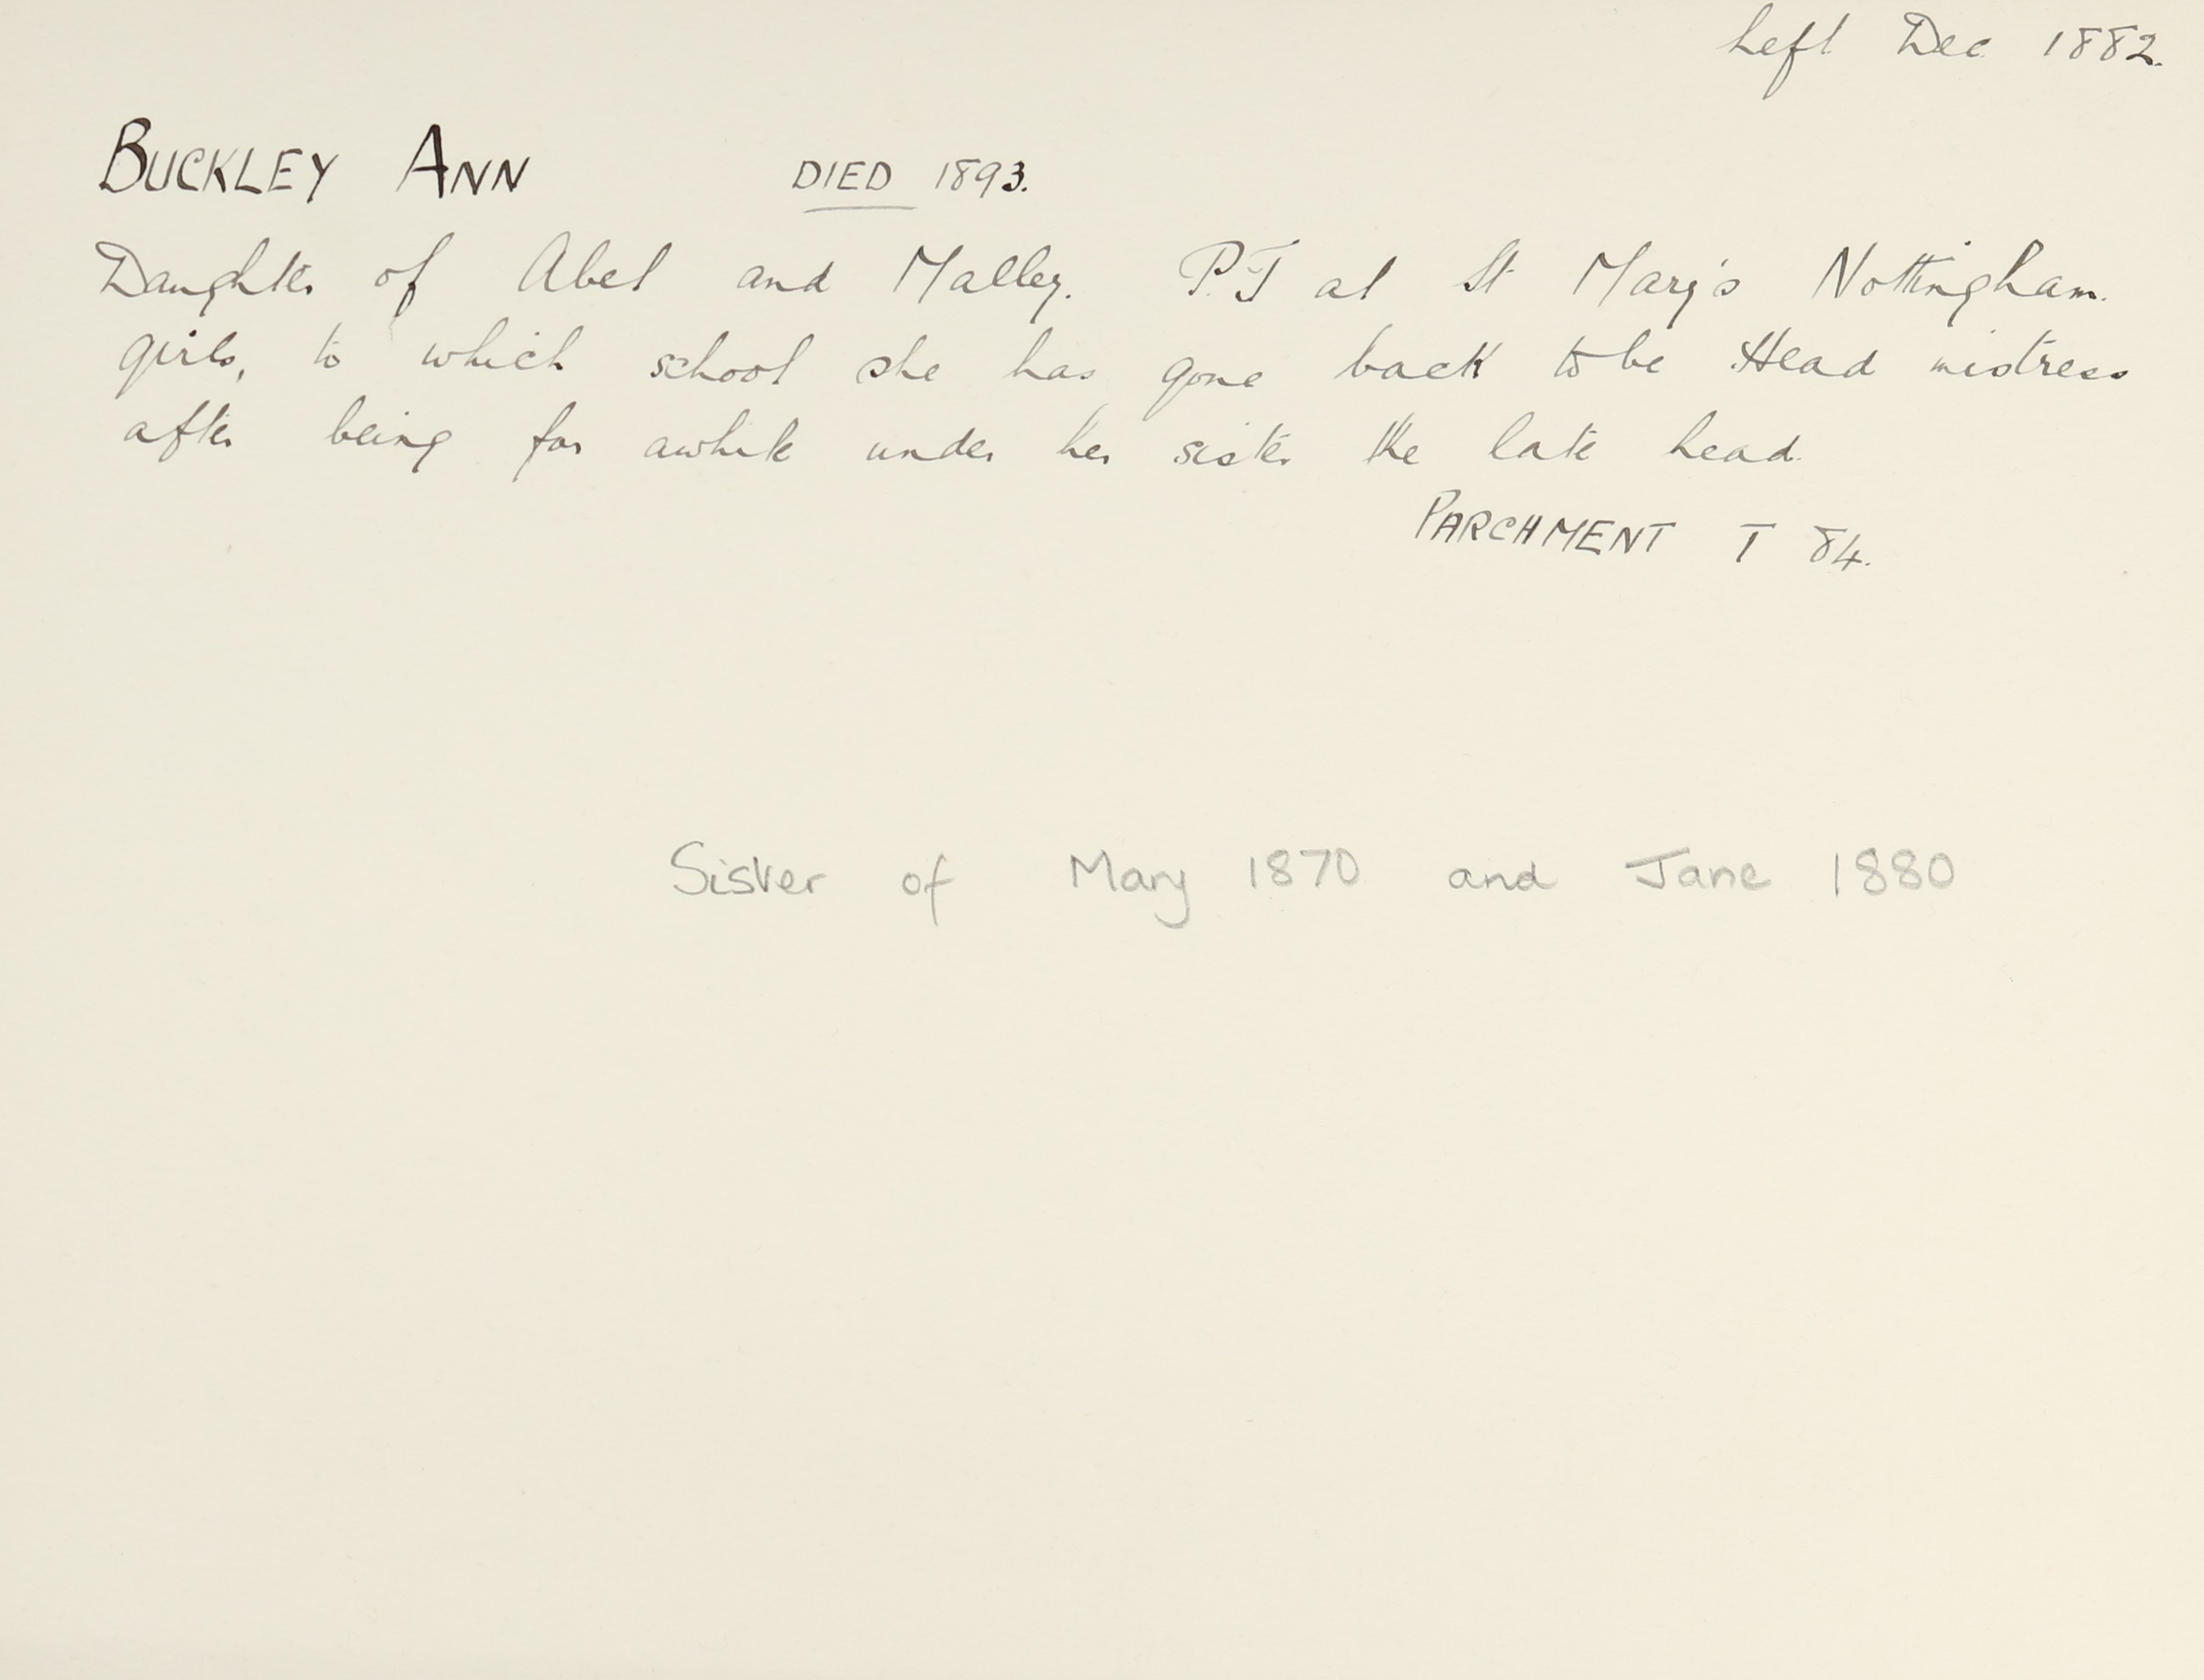 Left Dec 1882.
BUCKLEY ANN DIED 1893.
Daughter of Abel and Malley. P.T at St Mary's Nottingham.
girls, to which school she has gone back to be Head mistress
after being for awhile under her sister the late head.
PARCHMENT T 84.
Sister of Mary 1870 and Jane 1880